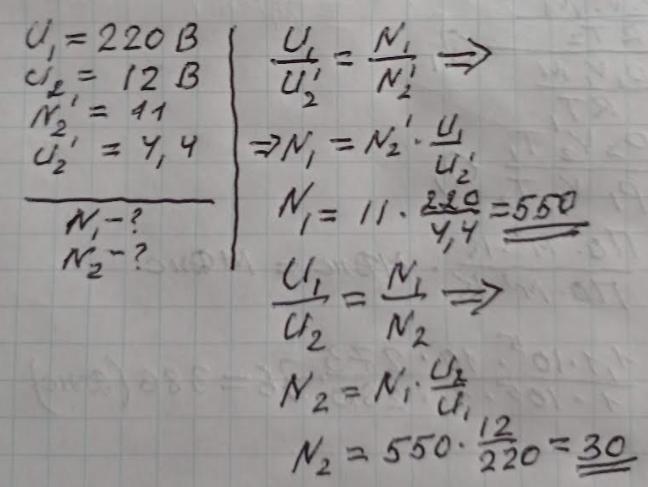 U₁ = 220 В
U₂ = 12 В
N₂' = 11
U₂' = 4,4
N₁ - ?
N₂ - ?
U₁/U₂' = N₁/N₂' ⇒
⇒ N₁ = N₂' · U₁/U₂'
N₁ = 11 · 220/4,4 = 550
U₁/U₂ = N₁/N₂ ⇒
N₂ = N₁ · U₂/U₁
N₂ = 550 · 12/220 = 30